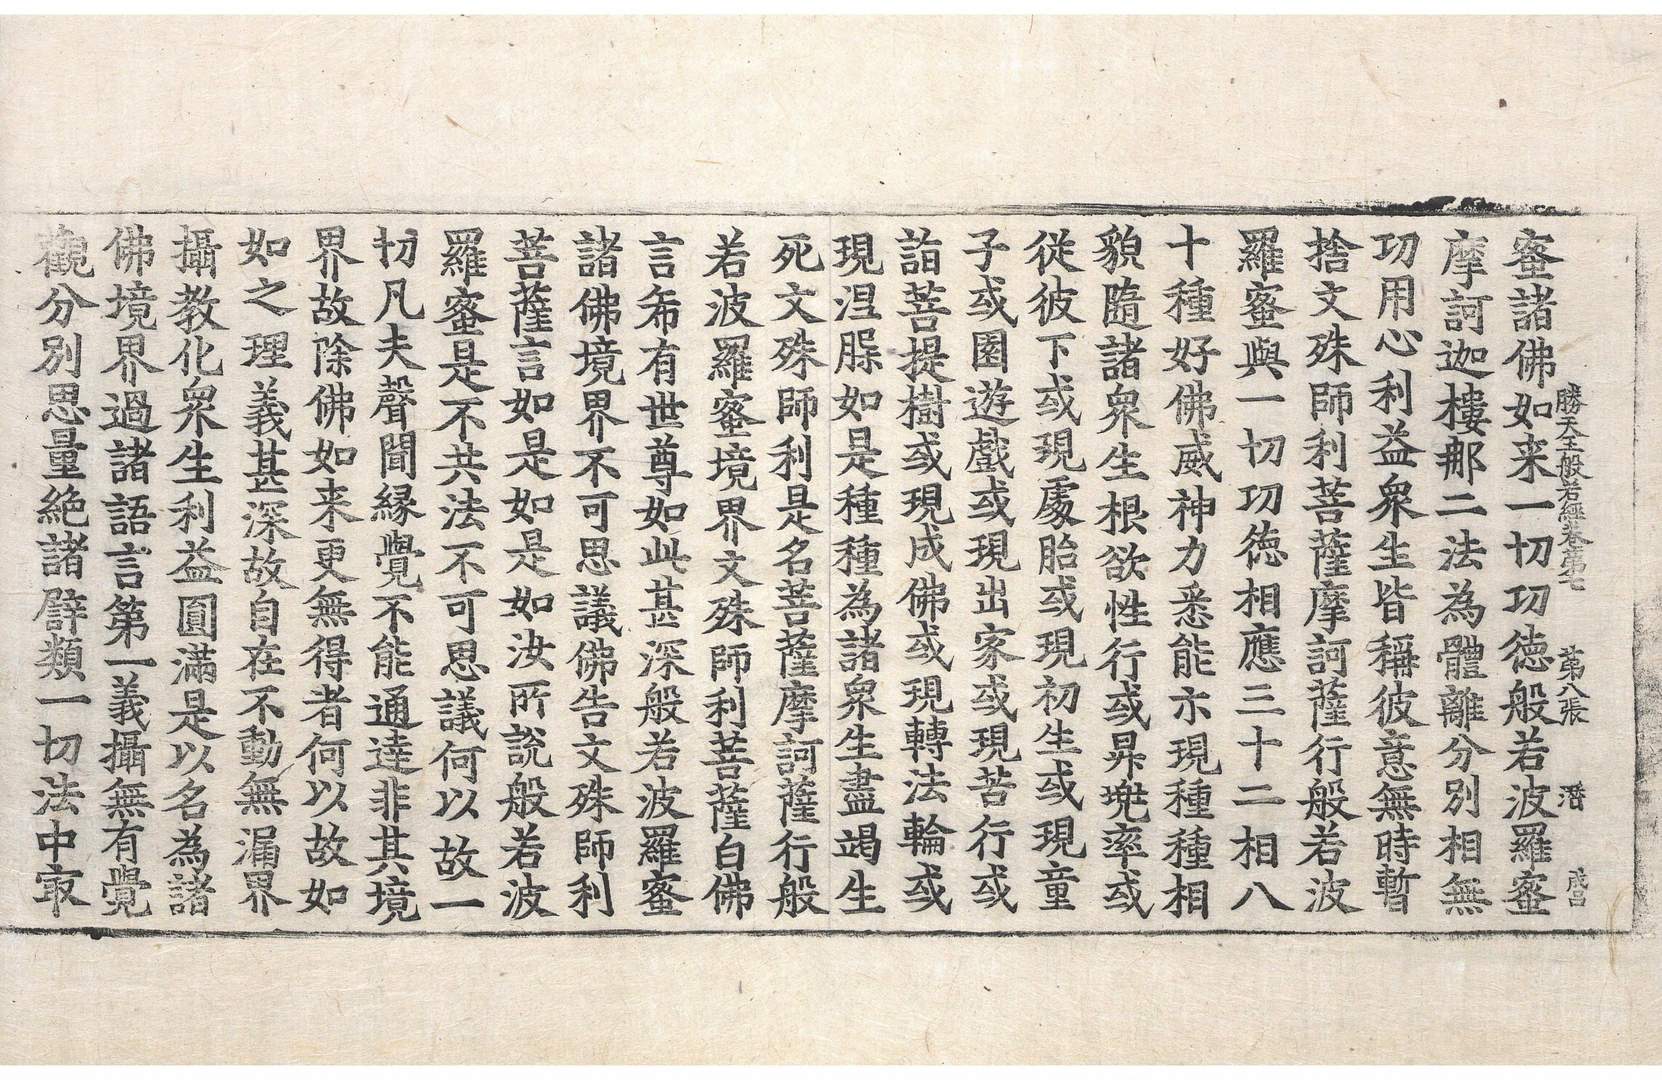 勝天王般若經卷第七 第八張 潛 成呂
蜜諸佛如来一切功徳般若波羅蜜
摩訶迦樓那二法為體離分別相無
功用心利益衆生皆稱彼意無時暫
捨文殊師利菩薩摩訶薩行般若波
羅蜜與一切功徳相應三十二相八
十種好佛威神力悉能示現種種相
貌隨諸衆生根欲性行或昇兠率或
從彼下或現處胎或現初生或現童
子或園遊戲或現出家或現苦行或
詣菩提樹或現成佛或現轉法輪或
現涅槃如是種種為諸衆生盡竭生
死文殊師利是名菩薩摩訶薩行般
若波羅蜜境界文殊師利菩薩白佛
言希有世尊如此甚深般若波羅蜜
諸佛境界不可思議佛告文殊師利
菩薩言如是如是如汝所說般若波
羅蜜是不共法不可思議何以故一
切凡夫聲聞緣覺不能通達非其境
界故除佛如来更無得者何以故如
如之理義甚深故自在不動無漏界
攝教化衆生利益圓滿是以名為諸
佛境界過諸語言第一義攝無有覺
觀分別思量絶諸譬類一切法中㝡